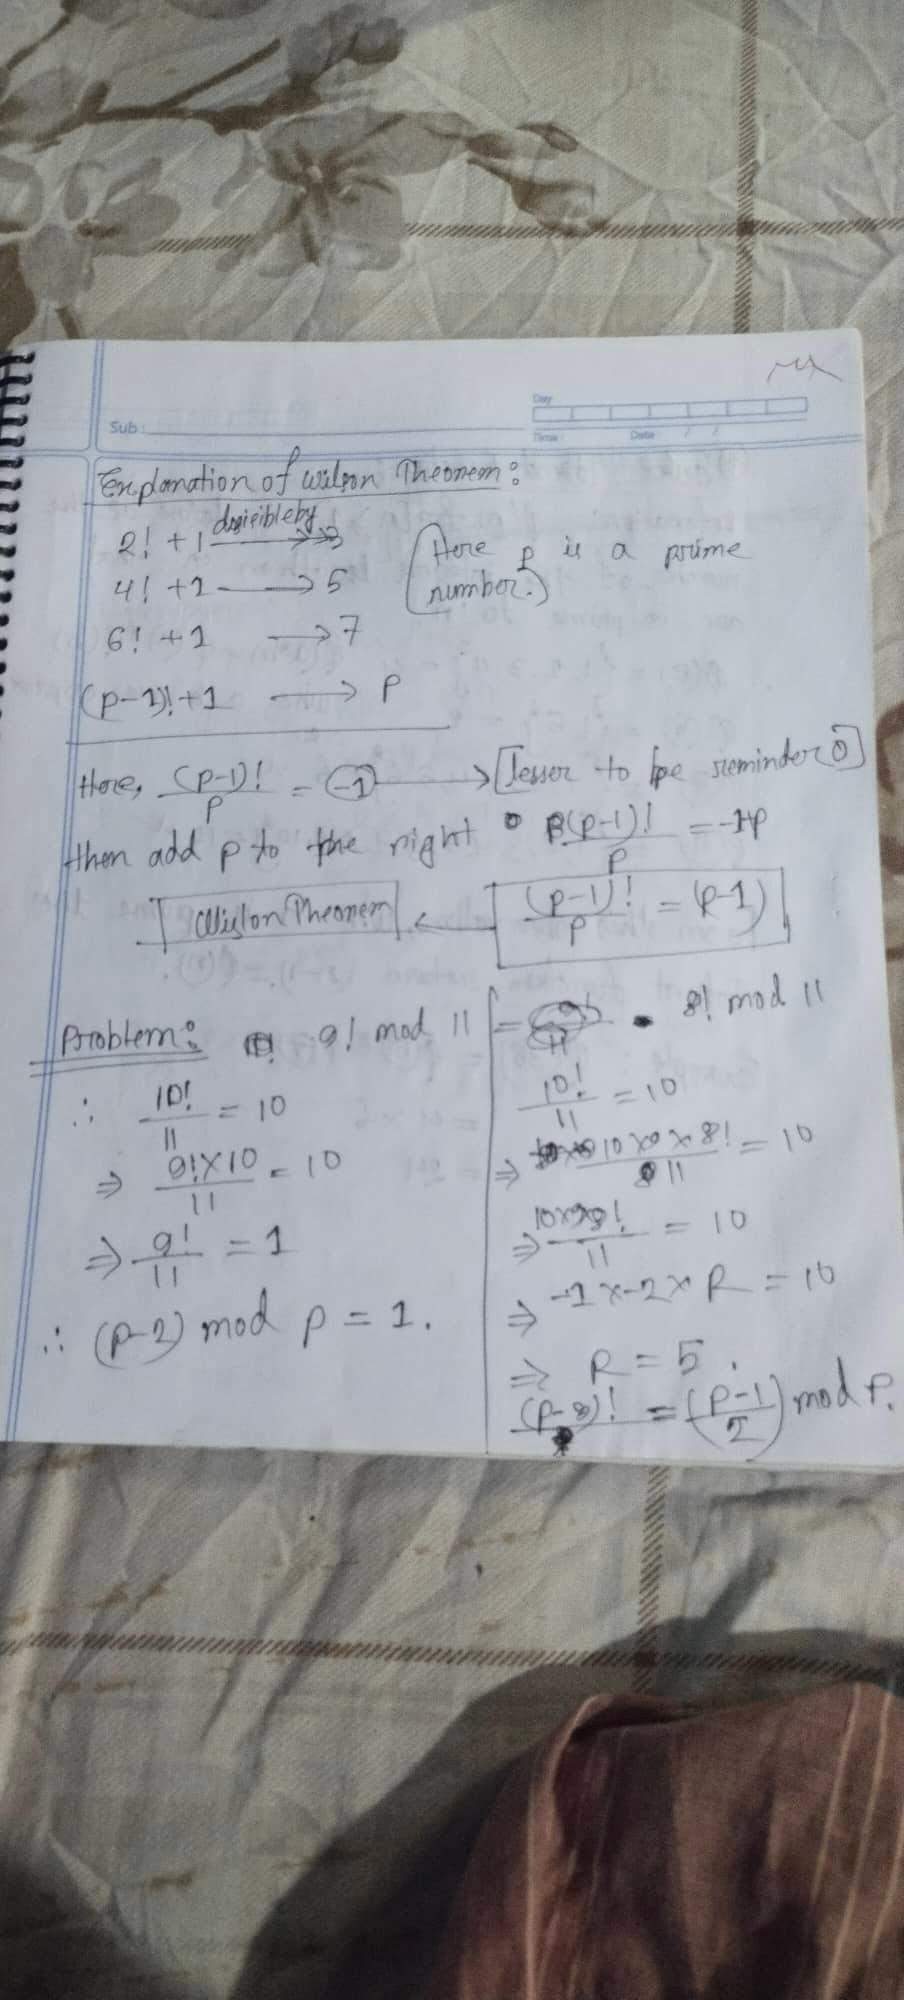 Day
Sub:
Time: Date: / /
Explanation of Wilson Theorem:
2! + 1 ⟶ 3
4! + 1 ⟶ 5
(Here p is a prime number.)
6! + 1 ⟶ 7
(p-1)! + 1 ⟶ p
Here, (p-1)!/p = -1 ⟶ [lesser to be reminder 0]
then add p to the right (p-1)!/p = -1+p
Wislon Theorem ← (p-1)!/p = (p-1)
Problem: 9! mod 11
∴ 10!/11 = 10
⇒ 9!×10/11 = 10
⇒ 9!/11 = 1
∴ (p-2) mod p = 1.
8! mod 11
10!/11 = 10
⇒ 10×9×8!/11 = 10
⇒ 10×9×8!/11 = 10
⇒ -1×-2×R = 10
⇒ R = 5.
= (p-1/2) mod p.